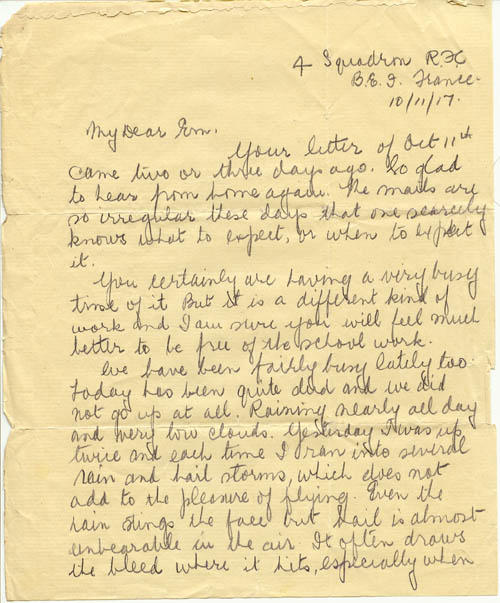 4 Squadron R.F.C
B.E.F. France.
10/11/17.
My Dear Em.
Your letter of Oct 11th
came two or three days ago. So glad
to hear from home again. The mails are
so irregular these days that one scarcely
knows what to expect, or when to expect
it.
You certainly are having a very busy
time of it But it is a different kind of
work and I am sure you will feel much
better to be free of the school work.
We have been fairly busy lately too.
Today has been quite dud and we did
not go up at all. Raining nearly all day
and very low clouds. Yesterday I was up
twice and each time I ran into several
rain and hail storms, which does not
add to the pleasure of flying. Even the
rain stings the face but hail is almost
unbearable in the air. It often draws
the bleed where it hits, especially when